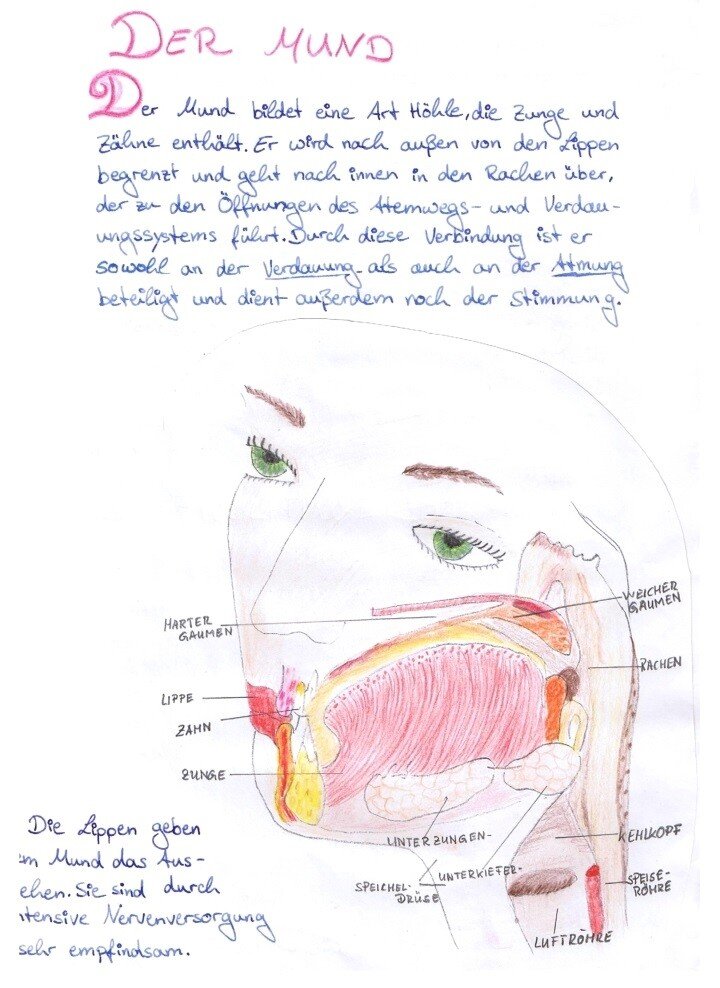 DER MUND
Der Mund bildet eine Art Höhle, die Zunge und
Zähne enthält. Er wird nach außen von den Lippen
begrenzt und geht nach innen in den Rachen über,
der zu den Öffnungen des Atemwegs- und Verdau-
ungssystems führt. Durch diese Verbindung ist er
sowohl an der Verdauung als auch an der Atmung
beteiligt und dient außerdem noch der Stimmung.
WEICHER
GAUMEN
HARTER
GAUMEN
RACHEN
LIPPE
ZAHN
ZUNGE
Die Lippen geben
Mund das Aus-
ehen. Sie sind durch
ntensive Nervenversorgung
sehr empfindsam.
UNTERZUNGEN-
UNTERKIEFER-
SPEICHEL-
DRÜSE
KEHLKOPF
SPEISE-
RÖHRE
LUFTRÖHRE